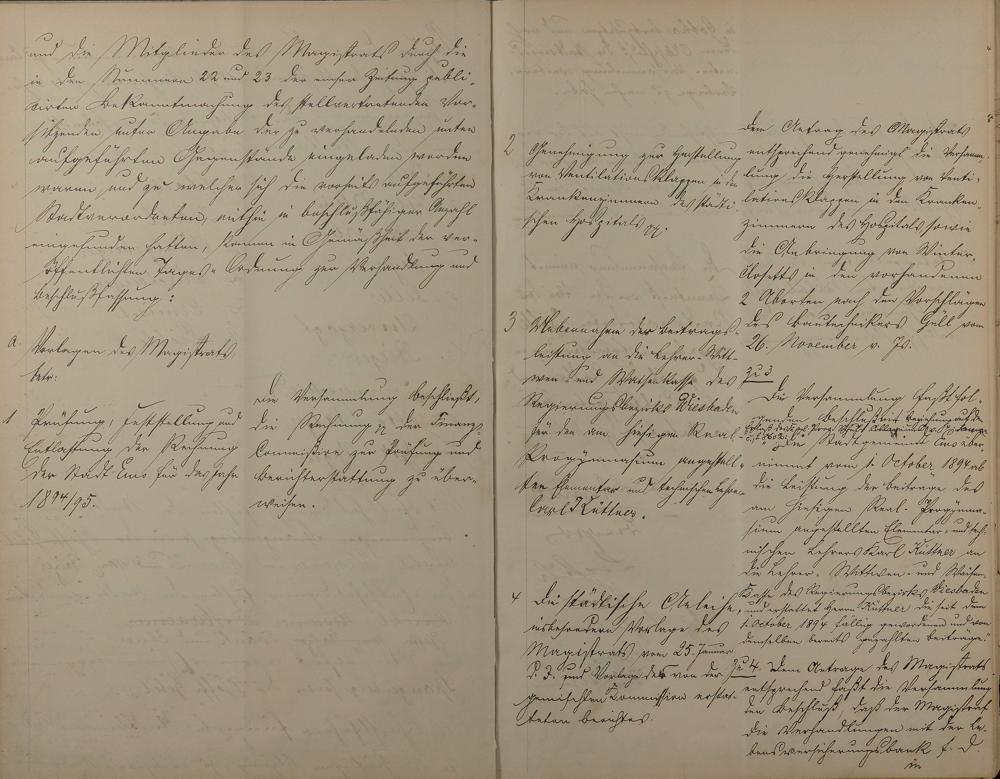 und die Mitglieder des Magistrats durch die
in den Nummern 22 und 23 der Emser Zeitung publi-
cirten Bekanntmachung des stellvertretenden Vor-
sitzenden unter Angabe der zu verhandelnden unten
aufgeführten Gegenstände eingeladen worden
waren und zu welcher sich die vorseits aufgeführten
Stadtverordneten, mithin in beschlußfähiger Anzahl
eingefunden hatten, kamen in Gemäßheit der ver-
öffentlichten Tages-Ordnung zur Verhandlung und
Beschlußfassung:
a. Vorlagen des Magistrats,
betr.
1 Prüfung, Feststellung und
Entlastung der Rechnung
der Stadt Ems für das Jahr
1894/95.
Die Versammlung beschließt,
die Rechnung der Finanz-
Commission zur Prüfung und
Berichterstattung zu über-
weisen.
2 Genehmigung zur Herstellung
von Ventilationsklappen in den
Krankenzimmern des städti-
schen Hospitals
Dem Antrag des Magistrats
entsprechend genehmigt die Versamm-
lung die Herstellung von Venti-
lationsklappen in den Kranken-
zimmern des Hospitals sowie
die Anbringung von Winter-
closetts in den vorhandenen
2 Aborten nach den Vorschlägen
des Bautechnikers Güll vom
26. November v. Js.
3 Uebernahme der Beitrags-
leistung an die Lehrer-Witt-
wen- und Waisenkasse des
Regierungsbezirks Wiesbaden
für den am hiesigen Real-
Progymnasium angestell-
ten Elementar und technischen Lehrer
Carl Küttner.
Zu 3
Die Versammlung faßt fol-
genden Beschluß in Beziehung auf
die Stadtgemeinde Ems über-
nimmt vom 1. October 1894 ab
die Leistung der Beiträge des
am hiesigen Real-Progymna-
sium angestellten Elementar- und tech-
nischen Lehrers Karl Küttner an
die Lehrer-, Wittwen- und Waisen-
kasse des Regierungsbezirks Wiesbaden
und erstattet Herrn Küttner die seit dem
1. October 1894 fällig gewordenen und von
demselben bereits gezahlten Beiträge."
4 Die städtische Anleihe,
insbesondere Vorlage des
Magistrats vom 25. Januar
d. J. und Vorlage des von der
gemischten Commission erstat-
teten Berichtes.
Zu 4. Dem Antrage des Magistrats
entsprechend faßt die Versammlung
den Beschluß, daß der Magistrat
die Verhandlungen mit der Le-
bensversicherungsbank f. D.
in